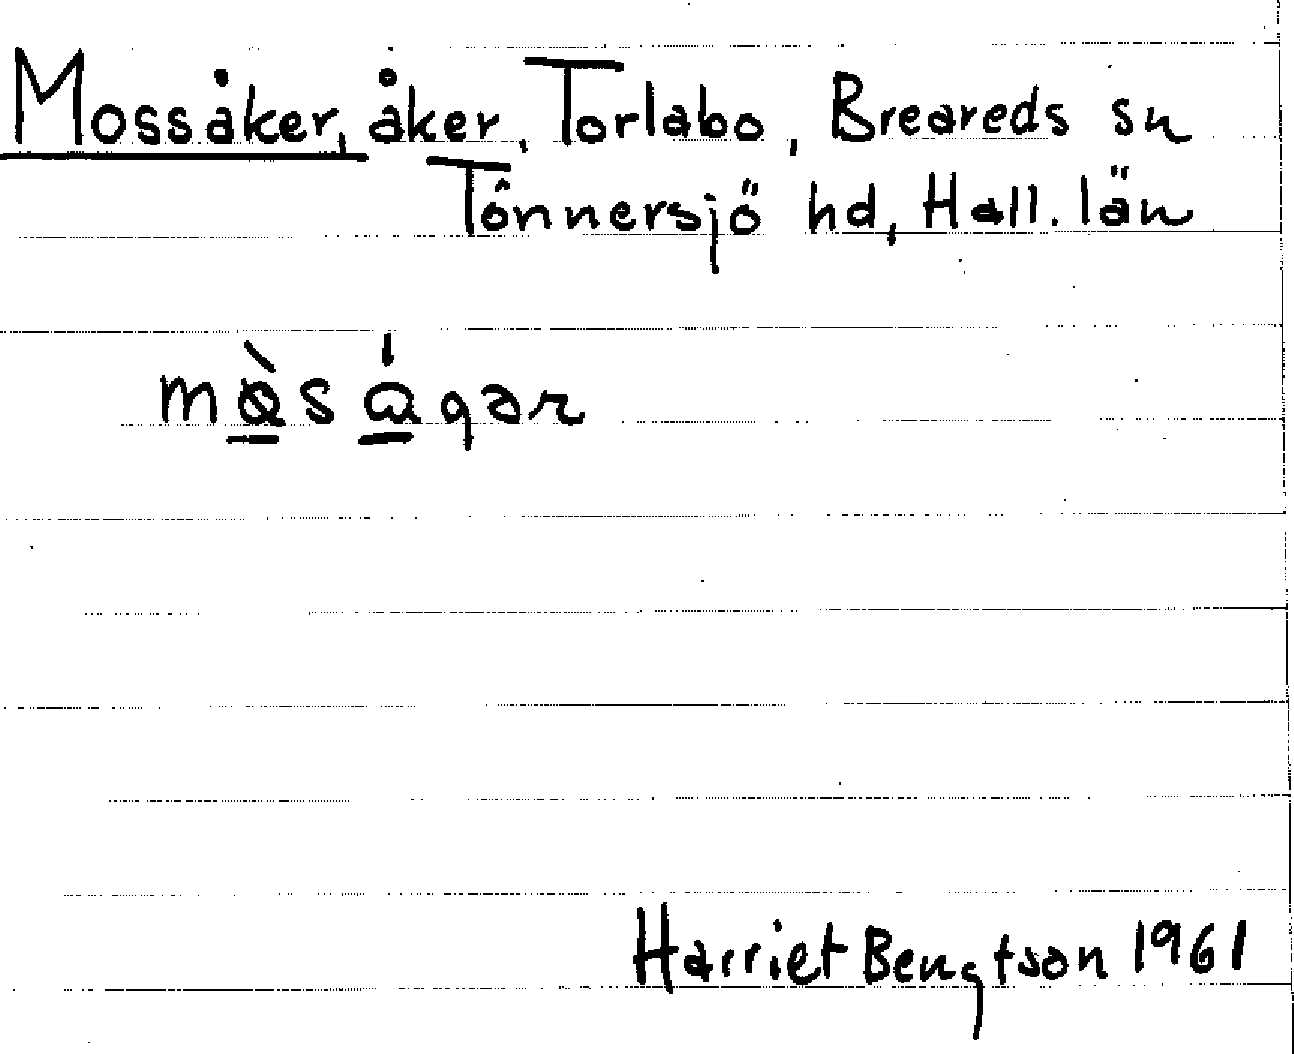 Mossåker, åker, Torlabo, Breareds sn
Tönnersjö hd, Hall. län
Harriet Bengtson 1961